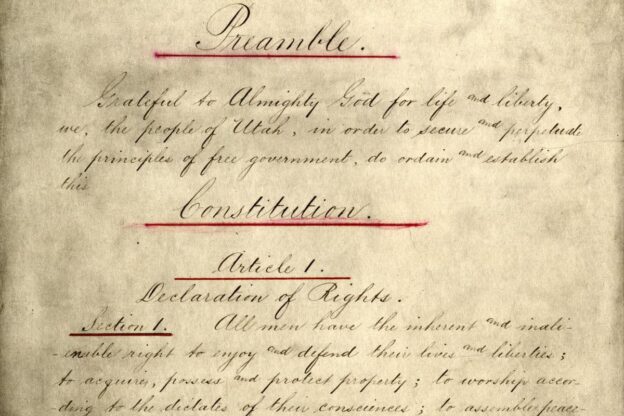 Preamble.
Grateful to Almighty God for life and liberty,
we, the people of Utah, in order to secure and perpetuate
the principles of free government, do ordain and establish
this
Constitution.
Article 1.
Declaration of Rights.
Section 1. All men have the inherent and inali-
-enable right to enjoy and defend their lives and liberties;
to acquire, possess and protect property; to worship accor-
-ding to the dictates of their consciences; to assemble peace-